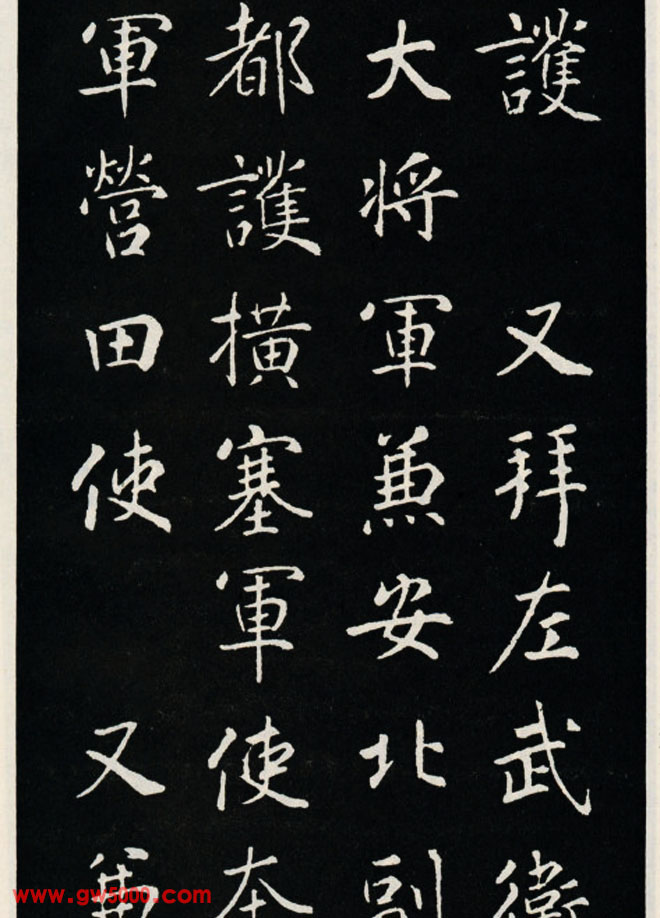 護 又拜左武衛
大将軍兼安北副
都護横塞軍使本
軍營田使 又兼
www.gw5000.com